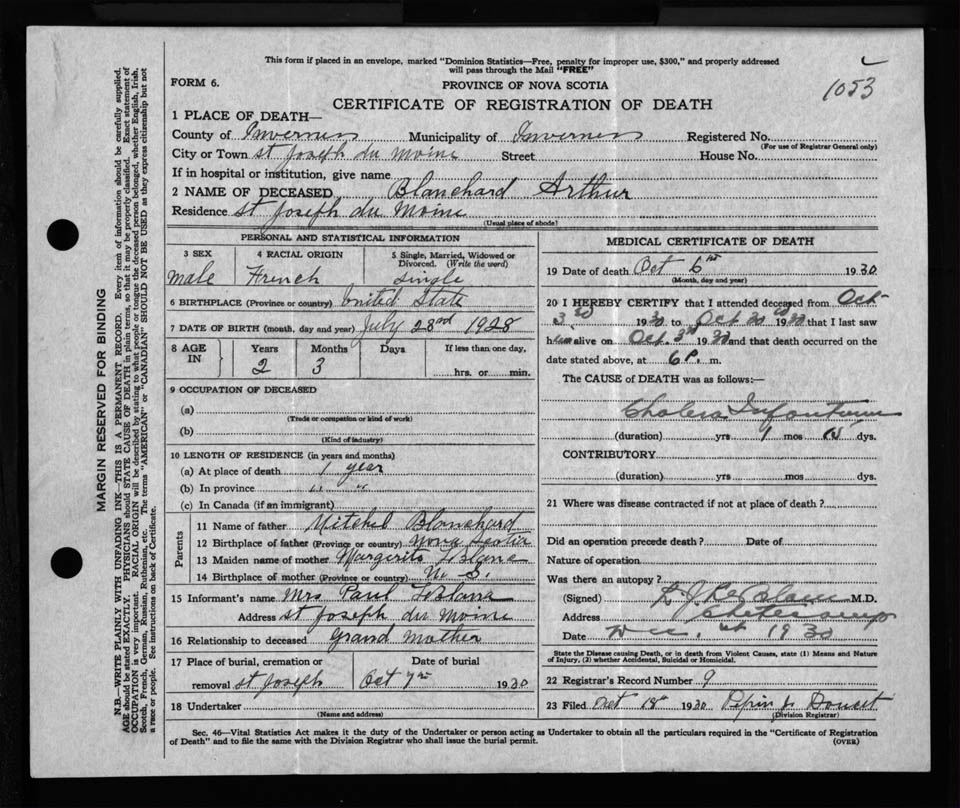 This form if placed in an envelope, marked "Dominion Statistics—Free, penalty for improper use, $300," and properly addressed
will pass through the Mail "FREE"
1053
FORM 6.
PROVINCE OF NOVA SCOTIA
CERTIFICATE OF REGISTRATION OF DEATH
1 PLACE OF DEATH—
County of Inverness Municipality of Inverness Registered No.
(For use of Registrar General only)
City or Town St Joseph du Moine Street House No.
If in hospital or institution, give name
2 NAME OF DECEASED Blanchard Arthur
Residence St Joseph du Moine
(Usual place of abode)
PERSONAL AND STATISTICAL INFORMATION
3 SEX 4 RACIAL ORIGIN 5 Single, Married, Widowed or
Divorced. (Write the word)
male French Single
6 BIRTHPLACE (Province or country) United State
7 DATE OF BIRTH (month, day and year) July 28nd 1928
8 AGE IN Years Months Days If less than one day,
2 3 hrs. or min.
9 OCCUPATION OF DECEASED
(a)
(Trade or occupation or kind of work)
(b)
(Kind of industry)
10 LENGTH OF RESIDENCE (in years and months)
(a) At place of death 1 year
(b) In province " "
(c) In Canada (if an immigrant)
Parents
11 Name of father Mitchel Blanchard
12 Birthplace of father (Province or country) Nova Scotia
13 Maiden name of mother Margerite LeBlanc
14 Birthplace of mother (Province or country) N. S.
15 Informant's name Mrs Paul LeBlanc
Address St Joseph du Moine
16 Relationship to deceased Grand Mother
17 Place of burial, cremation or Date of burial
removal St Joseph Oct 7th 1930
18 Undertaker
(Name and address)
MEDICAL CERTIFICATE OF DEATH
19 Date of death Oct 6th 1930
(Month, day and year)
20 I HEREBY CERTIFY that I attended deceased from Oct-
3rd 1930 to Oct 1930 that I last saw
him alive on Oct. 3rd 1930 and that death occurred on the
date stated above, at 6 P. m.
The CAUSE of DEATH was as follows:—
Cholera Infantum
(duration) yrs mos dys.
CONTRIBUTORY
(duration) yrs mos dys.
21 Where was disease contracted if not at place of death?
Did an operation precede death? Date of
Nature of operation
Was there an autopsy?
(Signed) M.D.
Address Cheticamp
Date 1930
State the Disease causing Death, or in death from Violent Causes, state (1) Means and Nature
of Injury, (2) whether Accidental, Suicidal or Homicidal.
22 Registrar's Record Number 9
23 Filed 1930
(Division Registrar)
Sec. 46—Vital Statistics Act makes it the duty of the Undertaker or person acting as Undertaker to obtain all the particulars required in the "Certificate of Registration
of Death" and to file the same with the Division Registrar who shall issue the burial permit.
(OVER)
MARGIN RESERVED FOR BINDING
N.B.—WRITE PLAINLY WITH UNFADING INK—THIS IS A PERMANENT RECORD. Every item of information should be carefully supplied.
AGE should be stated EXACTLY. PHYSICIANS should STATE CAUSE OF DEATH in plain terms, so that it may be properly classified. Exact statement of
OCCUPATION is very important. RACIAL ORIGIN will be described by stating to what people or tongue the deceased person belonged, whether English, Irish,
Scotch, French, German, Russian, Ruthenian, etc. The terms "AMERICAN" or "CANADIAN" SHOULD NOT BE USED as they express citizenship but not
a race or people. See instructions on back of Certificate.